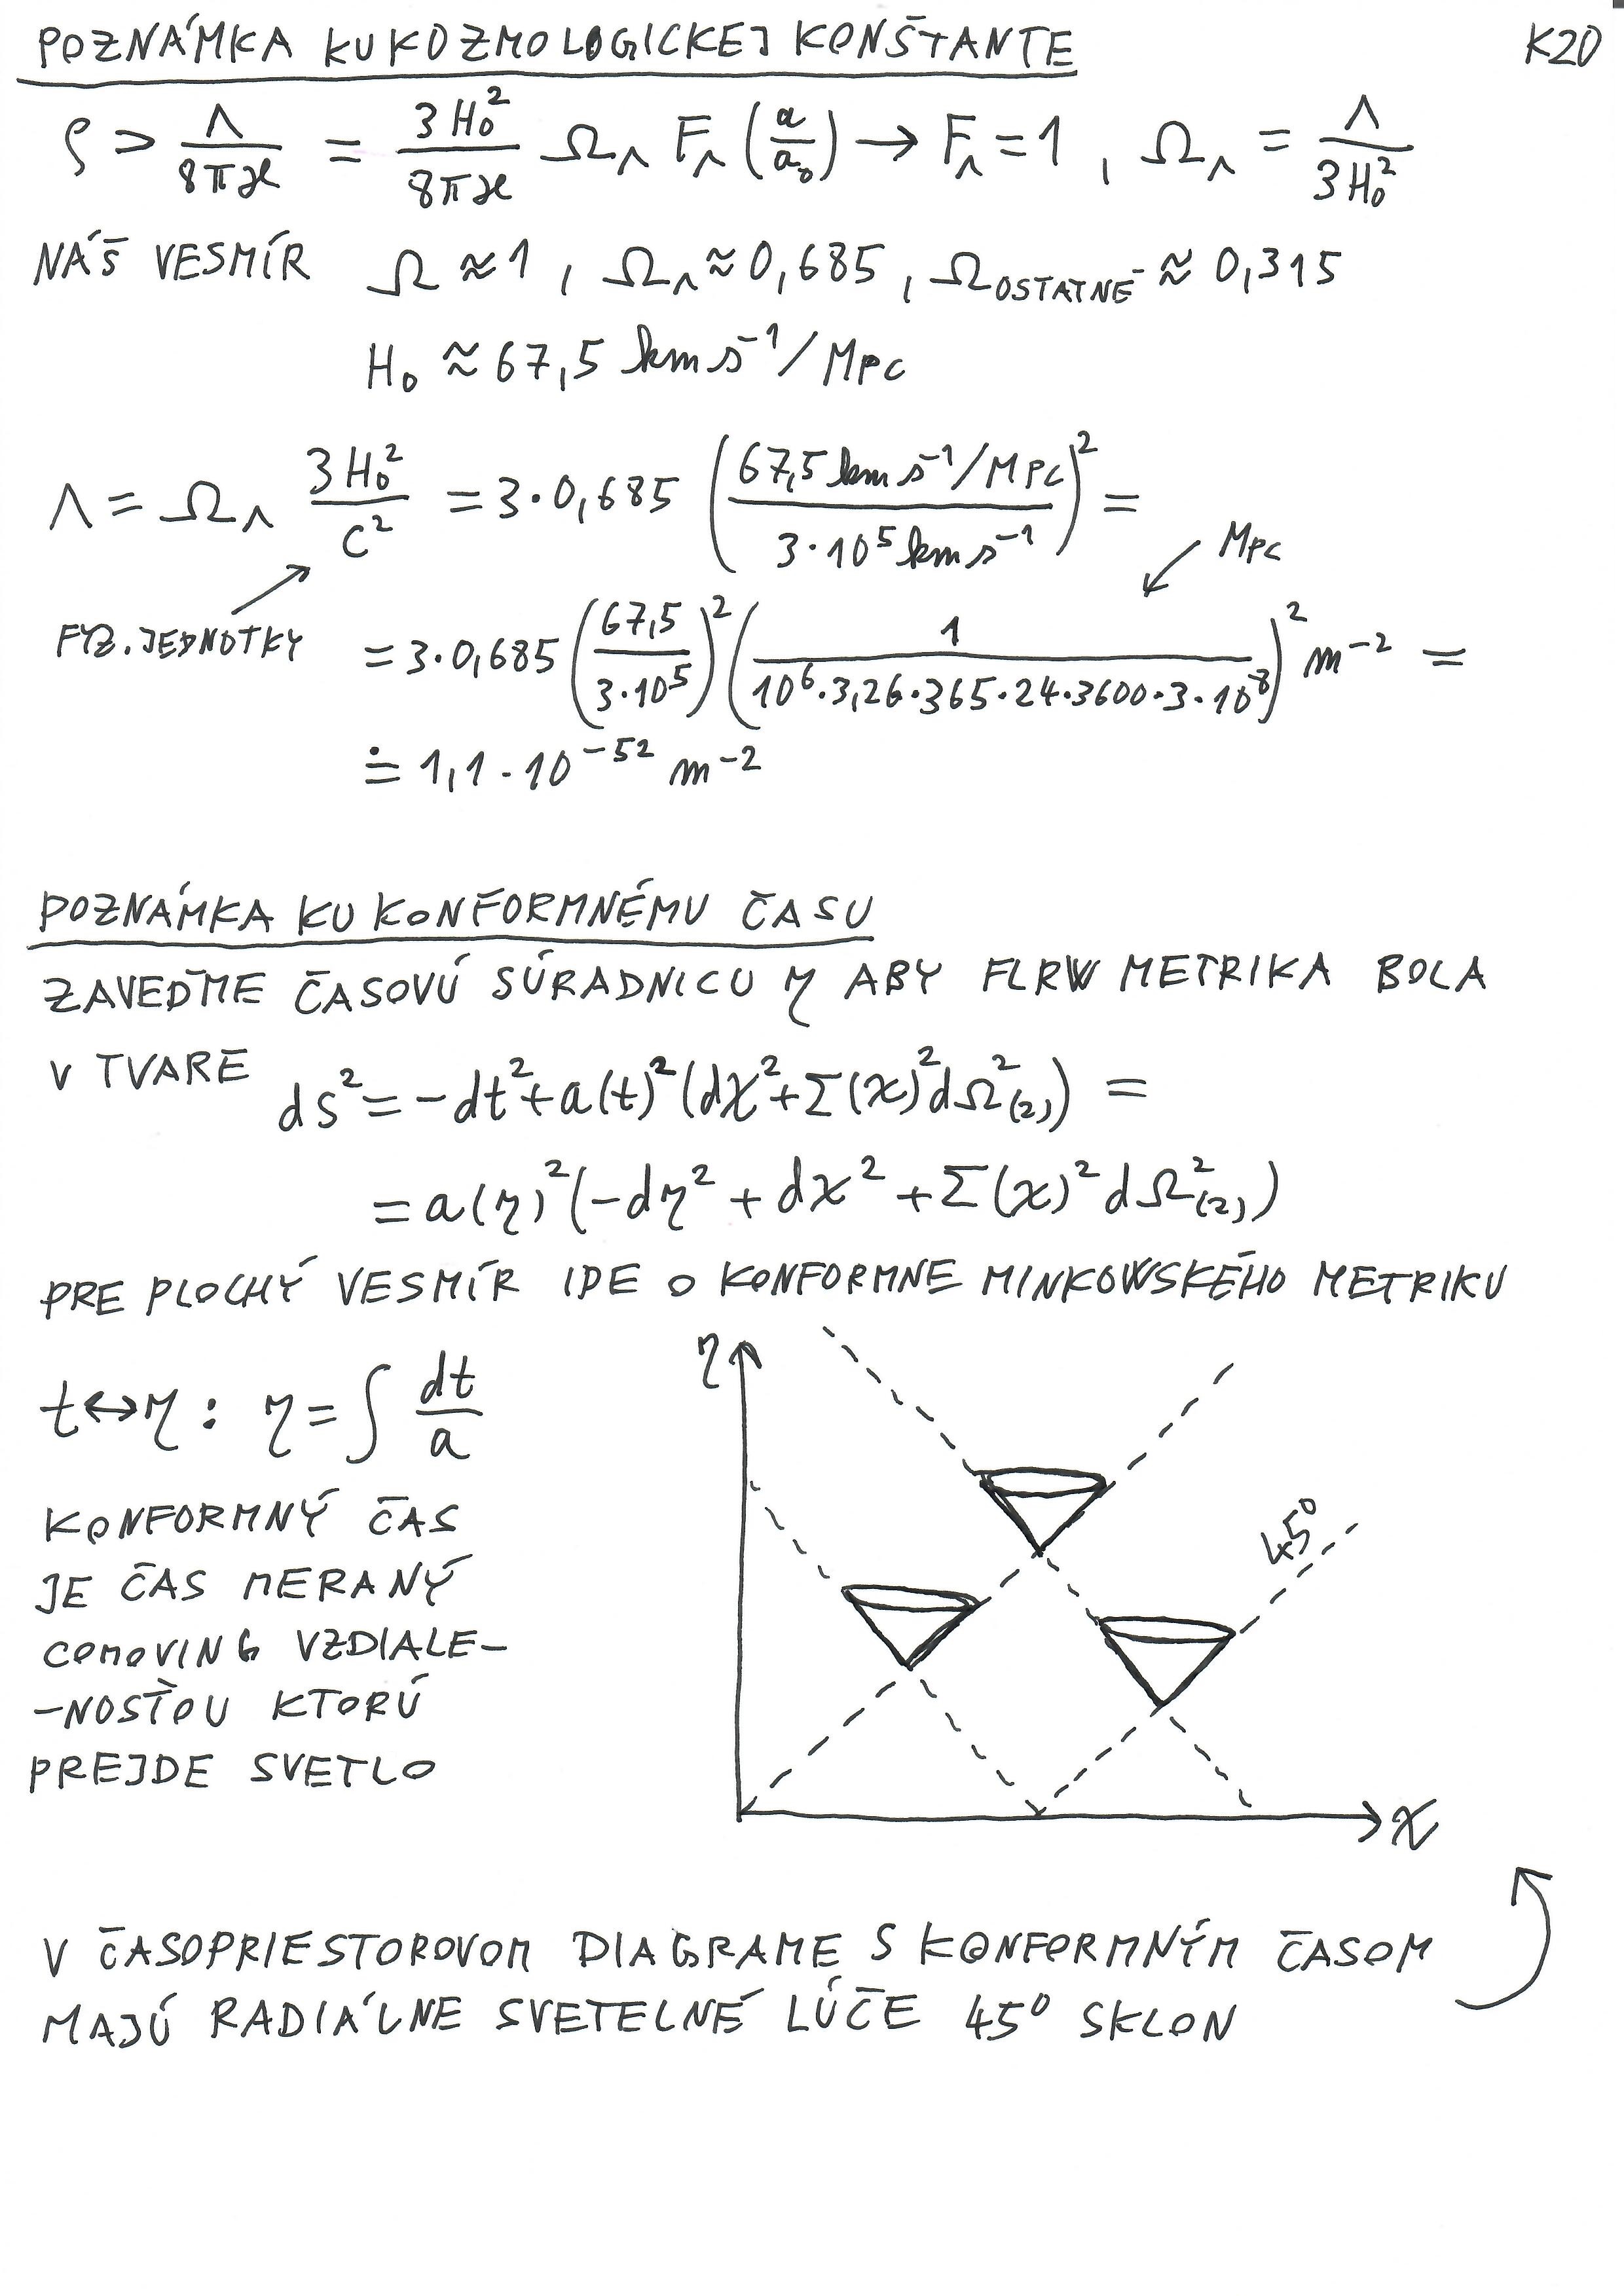 POZNÁMKA KU KOZMOLOGICKEJ KONŠTANTE K20
ρ > Λ/8πϰ = 3H₀²/8πϰ Ω_Λ F_Λ (a/a₀) → F_Λ = 1 , Ω_Λ = Λ/3H₀²
NÁŠ VESMÍR Ω ≈ 1 , Ω_Λ ≈ 0,685 , Ω_OSTATNÉ ≈ 0,315
H₀ ≈ 67,5 km s⁻¹/Mpc
Λ = Ω_Λ 3H₀²/c² = 3·0,685 (67,5 km s⁻¹/Mpc / 3·10⁵ km s⁻¹)² =
Mpc
FYZ. JEDNOTKY = 3·0,685 (67,5/3·10⁵)² (1/10⁶·3,26·365·24·3600·3·10⁸)² m⁻² =
≐ 1,1·10⁻⁵² m⁻²
POZNÁMKA KU KONFORMNÉMU ČASU
ZAVEĎME ČASOVÚ SÚRADNICU η ABY FLRW METRIKA BOLA
V TVARE ds² = −dt² + a(t)² (dχ² + Σ(χ)² dΩ²₍₂₎) =
= a(η)² (−dη² + dχ² + Σ(χ)² dΩ²₍₂₎)
PRE PLOCHÝ VESMÍR IDE O KONFORMNE MINKOWSKÉHO METRIKU
t ↔ η : η = ∫ dt/a
KONFORMNÝ ČAS
JE ČAS MERANÝ
COMOVING VZDIALE–
–NOSŤOU KTORÚ
PREJDE SVETLO
η
45°
χ
V ČASOPRIESTOROVOM DIAGRAME S KONFORMNÝM ČASOM
MAJÚ RADIÁLNE SVETELNÉ LÚČE 45° SKLON